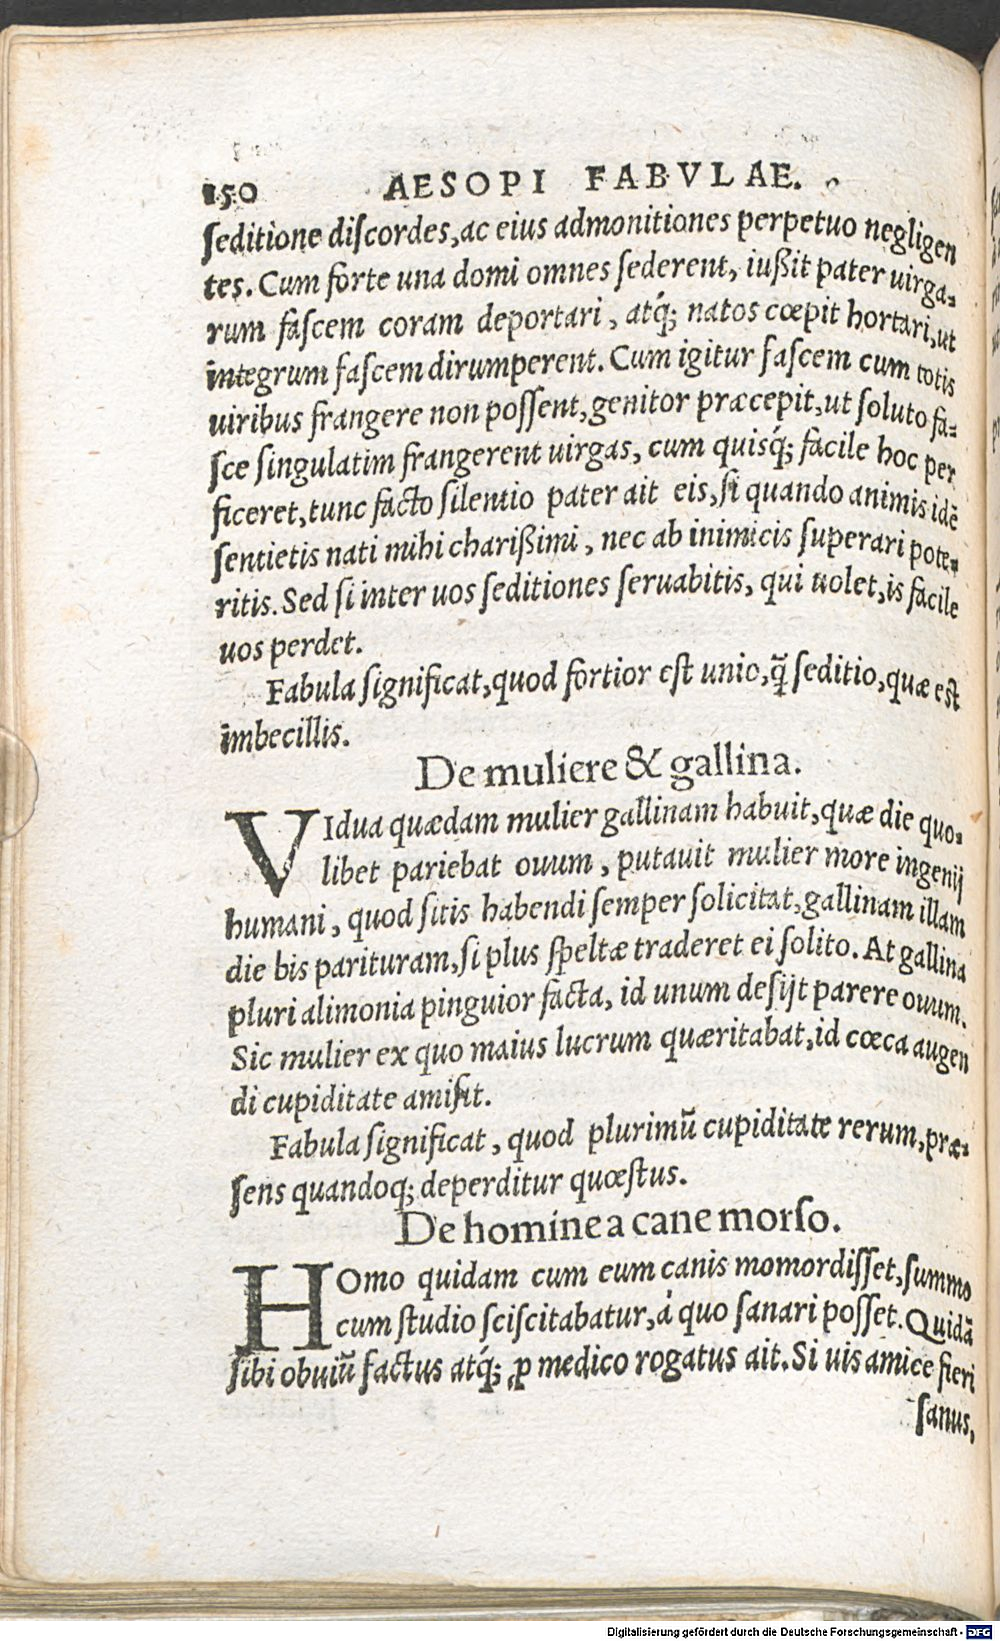 150 AESOPI FABVLAE.
ſeditione diſcordes, ac eius admonitiones perpetuo negligen
tes. Cum forte una domi omnes ſederent, iußit pater uirga-
rum faſcem coram deportari, atq́; natos cœpit hortari, ut
integrum faſcem dirumperent. Cum igitur faſcem cum totis
uiribus frangere non poſſent, genitor præcepit, ut ſoluto fa-
ſce ſingulatim frangerent uirgas, cum quisq́; facile hoc per
ficeret, tunc facto ſilentio pater ait eis, ſi quando animis idē
ſentietis nati mihi charißimi, nec ab inimicis ſuperari pote-
ritis. Sed ſi inter uos ſeditiones ſeruabitis, qui uolet, is facile
uos perdet.
Fabula ſignificat, quod fortior eſt unio, q̄ ſeditio, quæ eſt
imbecillis.
De muliere & gallina.
VIdua quædam mulier gallinam habuit, quæ die quo-
libet pariebat ouum, putauit mulier more ingenij
humani, quod ſitis habendi ſemper ſolicitat, gallinam illam
die bis parituram, ſi plus ſpeltæ traderet ei ſolito. At gallina
pluri alimonia pinguior facta, id unum deſijt parere ouum.
Sic mulier ex quo maius lucrum quæritabat, id cœca augen
di cupiditate amiſit.
Fabula ſignificat, quod plurimū cupiditate rerum, præ-
ſens quandoq; deperditur quœſtus.
De homine a cane morſo.
HOmo quidam cum eum canis momordiſſet, ſummo
cum ſtudio ſciſcitabatur, á quo ſanari poſſet. Quidā
ſibi obuiū factus atq́; ꝓ medico rogatus ait. Si uis amice fieri
ſanus,
Digitalisierung gefördert durch die Deutsche Forschungsgemeinschaft - DFG